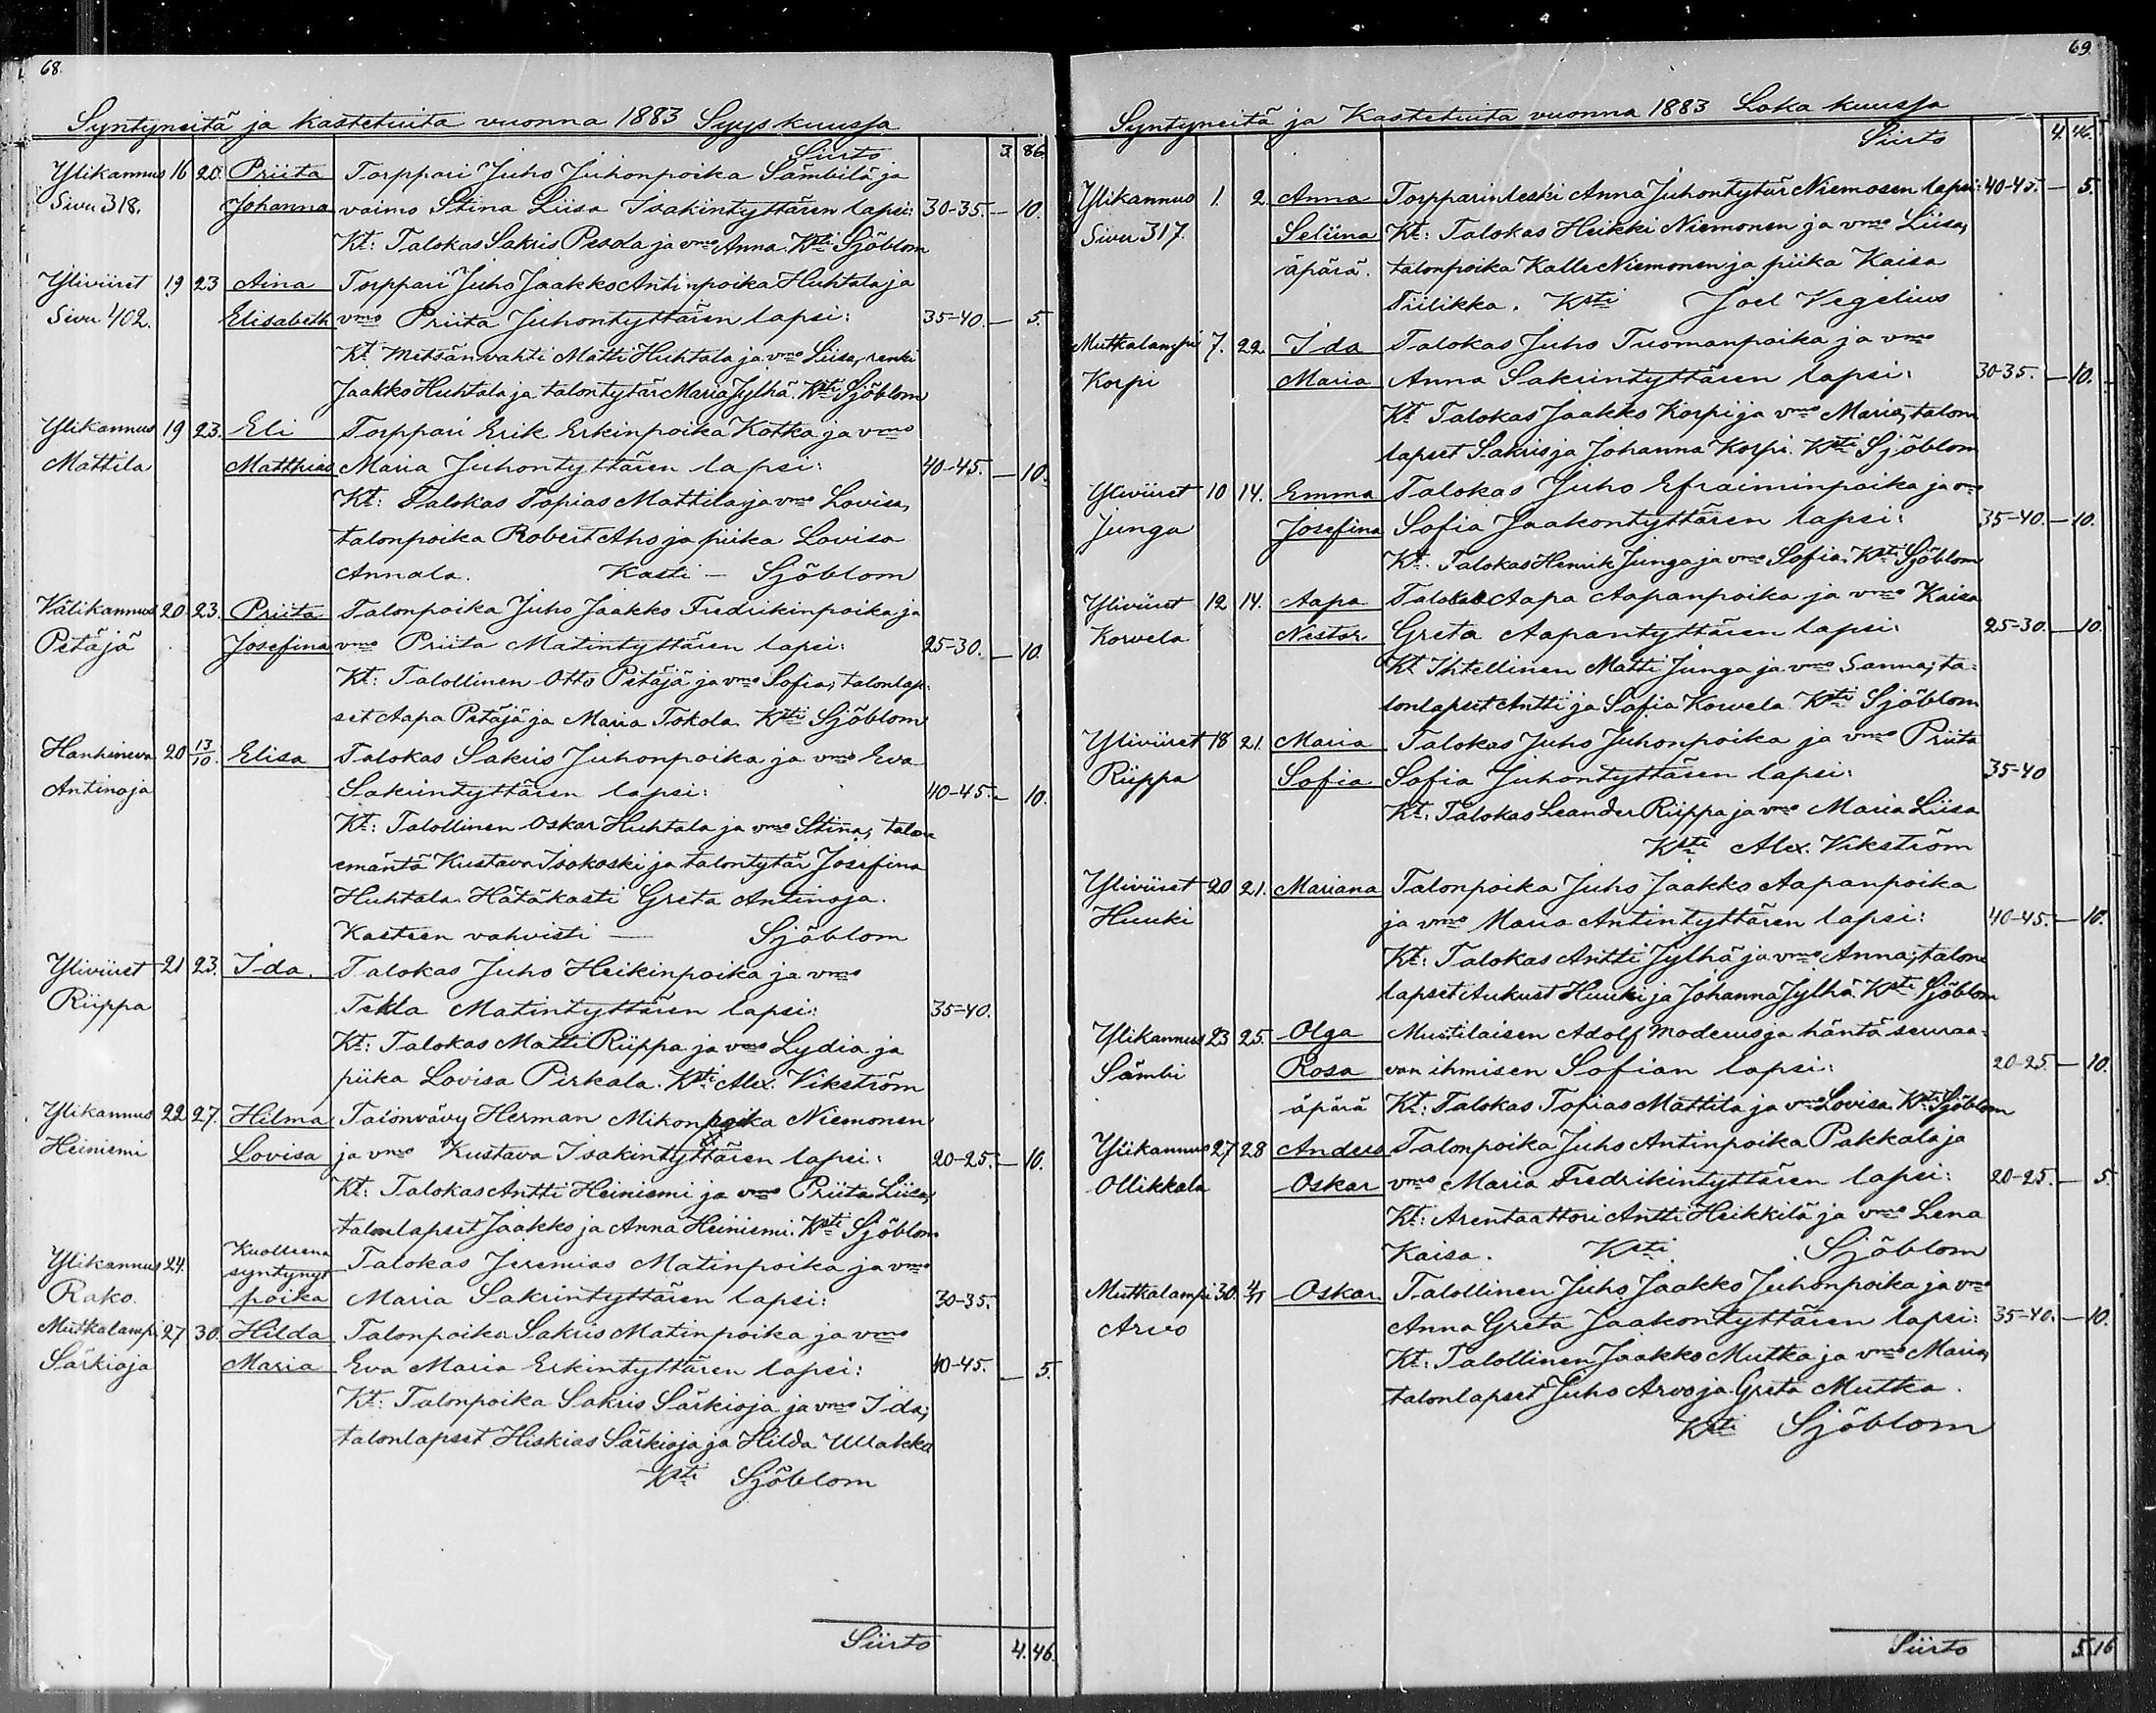 68.
Syntyneitä ja kastetuita vuonna 1883 Syyskuussa
Siirto 3. 86
Ylikannus 16 20. Priita Torppari Juho Juhonpoika Sämbilä ja
Sivu 318. Johanna vaimo Stina Liisa Isakintyttären lapsi: 30-35. — 10.
Kt: Talokas Sakris Pesola ja vmo Anna. Ksti Sjöblom
Yliviiret 19 23 Aina Torppari Juho Jaakko Antinpoika Huhtala ja
Sivu 402. Elisabeth vmo Priita Juhontyttären lapsi: 35-40. — 5.
Kt Metsänvahti Matti Huhtala ja vmo Liisa, renki
Jaakko Huhtala ja talontytär Maria Jylhä. Ksti Sjöblom
Ylikannus 19 23. Eli Torppari Erik Erkinpoika Kotka ja vmo
Mattila Matthias Maria Juhontyttären lapsi: 40-45. — 10.
Kt: Talokas Topias Mattila ja vmo Lovisa,
talonpoika Robert Aho ja piika Lovisa
Annala. Kasti — Sjöblom
Välikannus 20 23. Priita Talonpoika Juho Jaakko Fredrikinpoika ja
Petäjä Josefina vmo Priita Matintyttären lapsi: 25-30. — 10.
Kt: Talollinen Otto Petäjä ja vmo Sofia, talonlap-
set Aapa Petäjä ja Maria Tokola. Ksti Sjöblom
Hanhineva 20 13/10. Elisa Talokas Sakris Juhonpoika ja vmo Eva
Antinoja Sakrintyttären lapsi: 40-45. — 10.
Kt: Talollinen Oskar Huhtala ja vmo Stina, talon
emäntä Kustava Isokoski ja talontytär Josefina
Huhtala. Hätäkasti Greta Antinoja.
Kasteen vahvisti — Sjöblom
Yliviiret 21 23. Ida. Talokas Juho Heikinpoika ja vmo
Riippa Tekla Matintyttären lapsi: 35-40.
Kt: Talokas Matti Riippa ja vmo Lydia ja
piika Lovisa Pirkola. Ksti Alex. Vikström
Ylikannus 22 27. Hilma Talonvävy Herman Mikonpoika Niemonen
Heiniemi Lovisa ja vmo Kustava Isakintyttären lapsi: 20-25. — 10.
Kt: Talokas Antti Heiniemi ja vmo Priita Liisa,
talonlapset Jaakko ja Anna Heiniemi. Ksti Sjöblom
Ylikannus 24. Kuolleena syntynyt Talokas Jeremias Matinpoika ja vmo
Rako. poika Maria Sakrintyttären lapsi: 30-35.
Mutkalampi 27 30. Hilda Talonpoika Sakris Matinpoika ja vmo
Särkioja Maria Eva Maria Erkintyttären lapsi: 40-45. — 5.
Kt: Talonpoika Sakris Särkioja ja vmo Ida;
talonlapset Hiskias Särkioja ja Hilda Ullakko
Ksti Sjöblom
Siirto 4. 46.
69.
Syntyneitä ja Kastetuita vuonna 1883 Lokakuussa
Siirto 4. 46.
Ylikannus 1. 2. Anna Torpparinleski Anna Juhontytär Niemosen lapsi: 40-45. — 5.
Sivu 317. Seliina Kt: Talokas Heikki Niemonen ja vmo Liisa,
äpärä. talonpoika Kalle Niemonen ja piika Kaisa
Tiilikka. Ksti Joel Vegelius
Mutkalampi 7. 22. Ida Talokas Juho Tuomanpoika ja vmo
Korpi Maria Anna Sakrintyttären lapsi: 30-35. — 10.
Kt Talokas Jaakko Korpi ja vmo Maria, talon
lapset Sakris ja Johanna Korpi. Ksti Sjöblom
Yliviiret 10 14. Emma Talokas Juho Efraiminpoika ja vmo
Junga Josefina Sofia Jaakontyttären lapsi: 35-40. — 10.
Kt. Talokas Henrik Junga ja vmo Sofia. Ksti Sjöblom
Yliviiret 12 14. Aapa Talokas Aapa Aapanpoika ja vmo Kaisa
Korvela Nestor Greta Aapantyttären lapsi: 25-30. — 10.
Kt Ihtellinen Matti Junga ja vmo Sanna; ta-
lonlapset Antti ja Sofia Korvela Ksti Sjöblom
Yliviiret 18 21. Maria Talokas Juho Juhonpoika ja vmo Priita
Riippa Sofia Sofia Juhontyttären lapsi: 35-40
Kt: Talokas Leander Riippa ja vmo Maria Liisa
Ksti Alex. Vikström
Yliviiret 20 21. Mariana Talonpoika Juho Jaakko Aapanpoika
Huuki ja vmo Maria Antintyttären lapsi: 40-45. — 10.
Kt: Talokas Antti Jylhä ja vmo Anna; talon
lapset Aukust Huuki ja Johanna Jylhä. Ksti Sjöblom
Ylikannus 23 25. Olga Mustilaisen Adolf Moderus ja häntä seuraa-
Sämbi Rosa van ihmisen Sofian lapsi: 20-25. — 10.
äpärä Kt: Talokas Topias Mattila ja vmo Lovisa. Ksti Sjöblom
Ylikannus 27 28 Anders Talonpoika Juho Antinpoika Pakkala ja
Ollikkala Oskar vmo Maria Fredrikintyttären lapsi: 20-25. — 5.
Kt: Arentaattori Antti Heikkilä ja vmo Lena
Kaisa. Ksti Sjöblom
Mutkalampi 30. 4/11 Oskar. Talollinen Juho Jaakko Juhonpoika ja vmo
Arvo Anna Greta Jaakontyttären lapsi: 35-40. — 10.
Kt: Talollinen Jaakko Mutka ja vmo Maria,
talonlapset Juho Arvo ja Greta Mutka.
Ksti Sjöblom
Siirto 5. 16